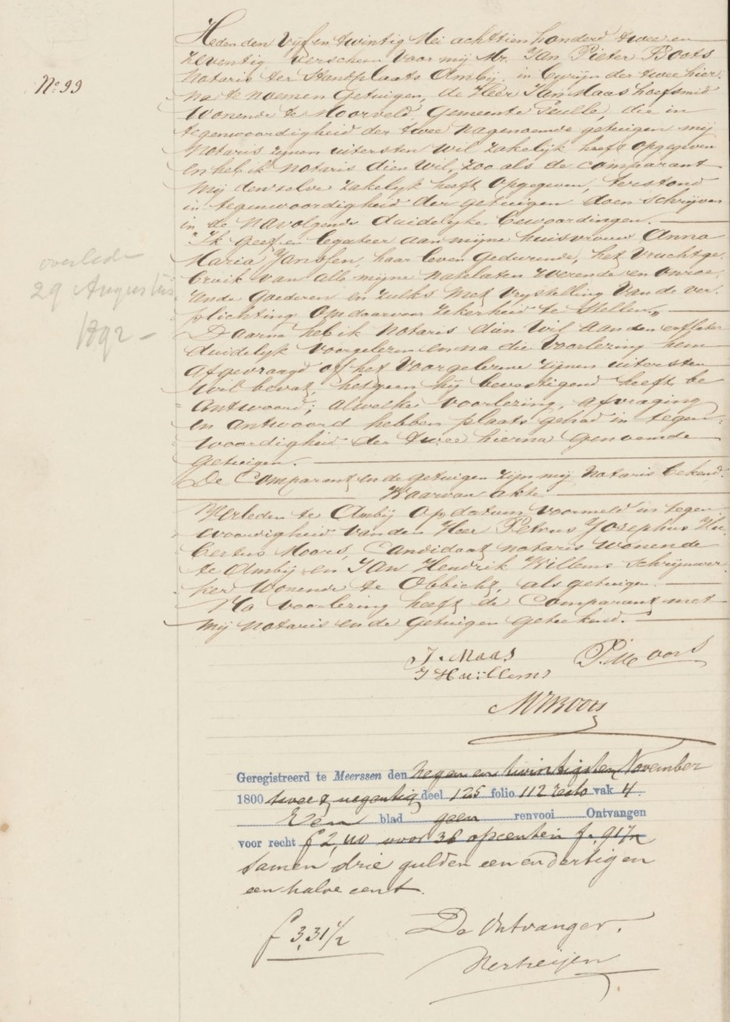 Heden den Vijf en twintig Mei achtien honderd twee en
zeventig verscheen voor mij Mr. Jan Pieter Roots
Notaris ter Standplaats Ambij, in bijzijn der twee hier
No 99
na te noemen Getuigen, de Heer Jan Maas hoefsmid
Wonende te Moorveld, Gemeente Geulle, die in
tegenwoordigheid der twee nagenoemde getuigen mij
Notaris zijnen uitersten Wil zakelijk heeft opgegeven
en heb ik notaris dien wil, zoo als de comparant
mij denzelve zakelijk heeft opgegeven, terstond
in tegenwoordigheid der getuigen doen schrijven
in de navolgende duidelijke bewoordingen.
Ik Geef en legateer aan mijne huisvrouw Anna
Maria Janssen, haar leven gedurende, het Vruchtge
overleden
29 Augustus
1892 -
bruik van alle mijne nalaten roerende en onroe
rende goederen en zulks met vrijstelling van de ver
plichting om daarvoor zekerheid te stellen.
Daarna heb ik Notaris dien wil aan den testateur
duidelijk voorgelezen en na die voorlezing hem
afgevraagd of het voorgelezene zijnen uitersten
Wil bevat, hetgeen hij bevestigend heeft be
antwoord; al welke voorlezing, afvraging
en antwoord hebben plaats gehad in tegen
woordigheid der twee hierna genoemde
getuigen.
De Comparant en de getuigen zijn mij Notaris bekend.
Waarvan akte
Verleden te Ambij op datum voormeld in tegen
woordigheid van den Heer Petrus Josephus Hu
bertus Moors, Candidaat notaris wonende
te Ambij en Jan Hendrik Willems Schrijnwer
ker wonende te Obbicht, als getuigen.
Na voorlezing heeft de Comparant met
mij notaris en de getuigen geteekend.
J. Maas
P. Moors
J H Willems
Geregistreerd te Meerssen den negen en twintigsten November
1800 twee & negentig deel 125 folio 112 recto vak 4
Een blad geen renvooi Ontvangen
voor recht f 2,40 voor 38 opcenten f. 91½
samen drie gulden een en dertig en
een halve cent.
f 3,31½
De Ontvanger,